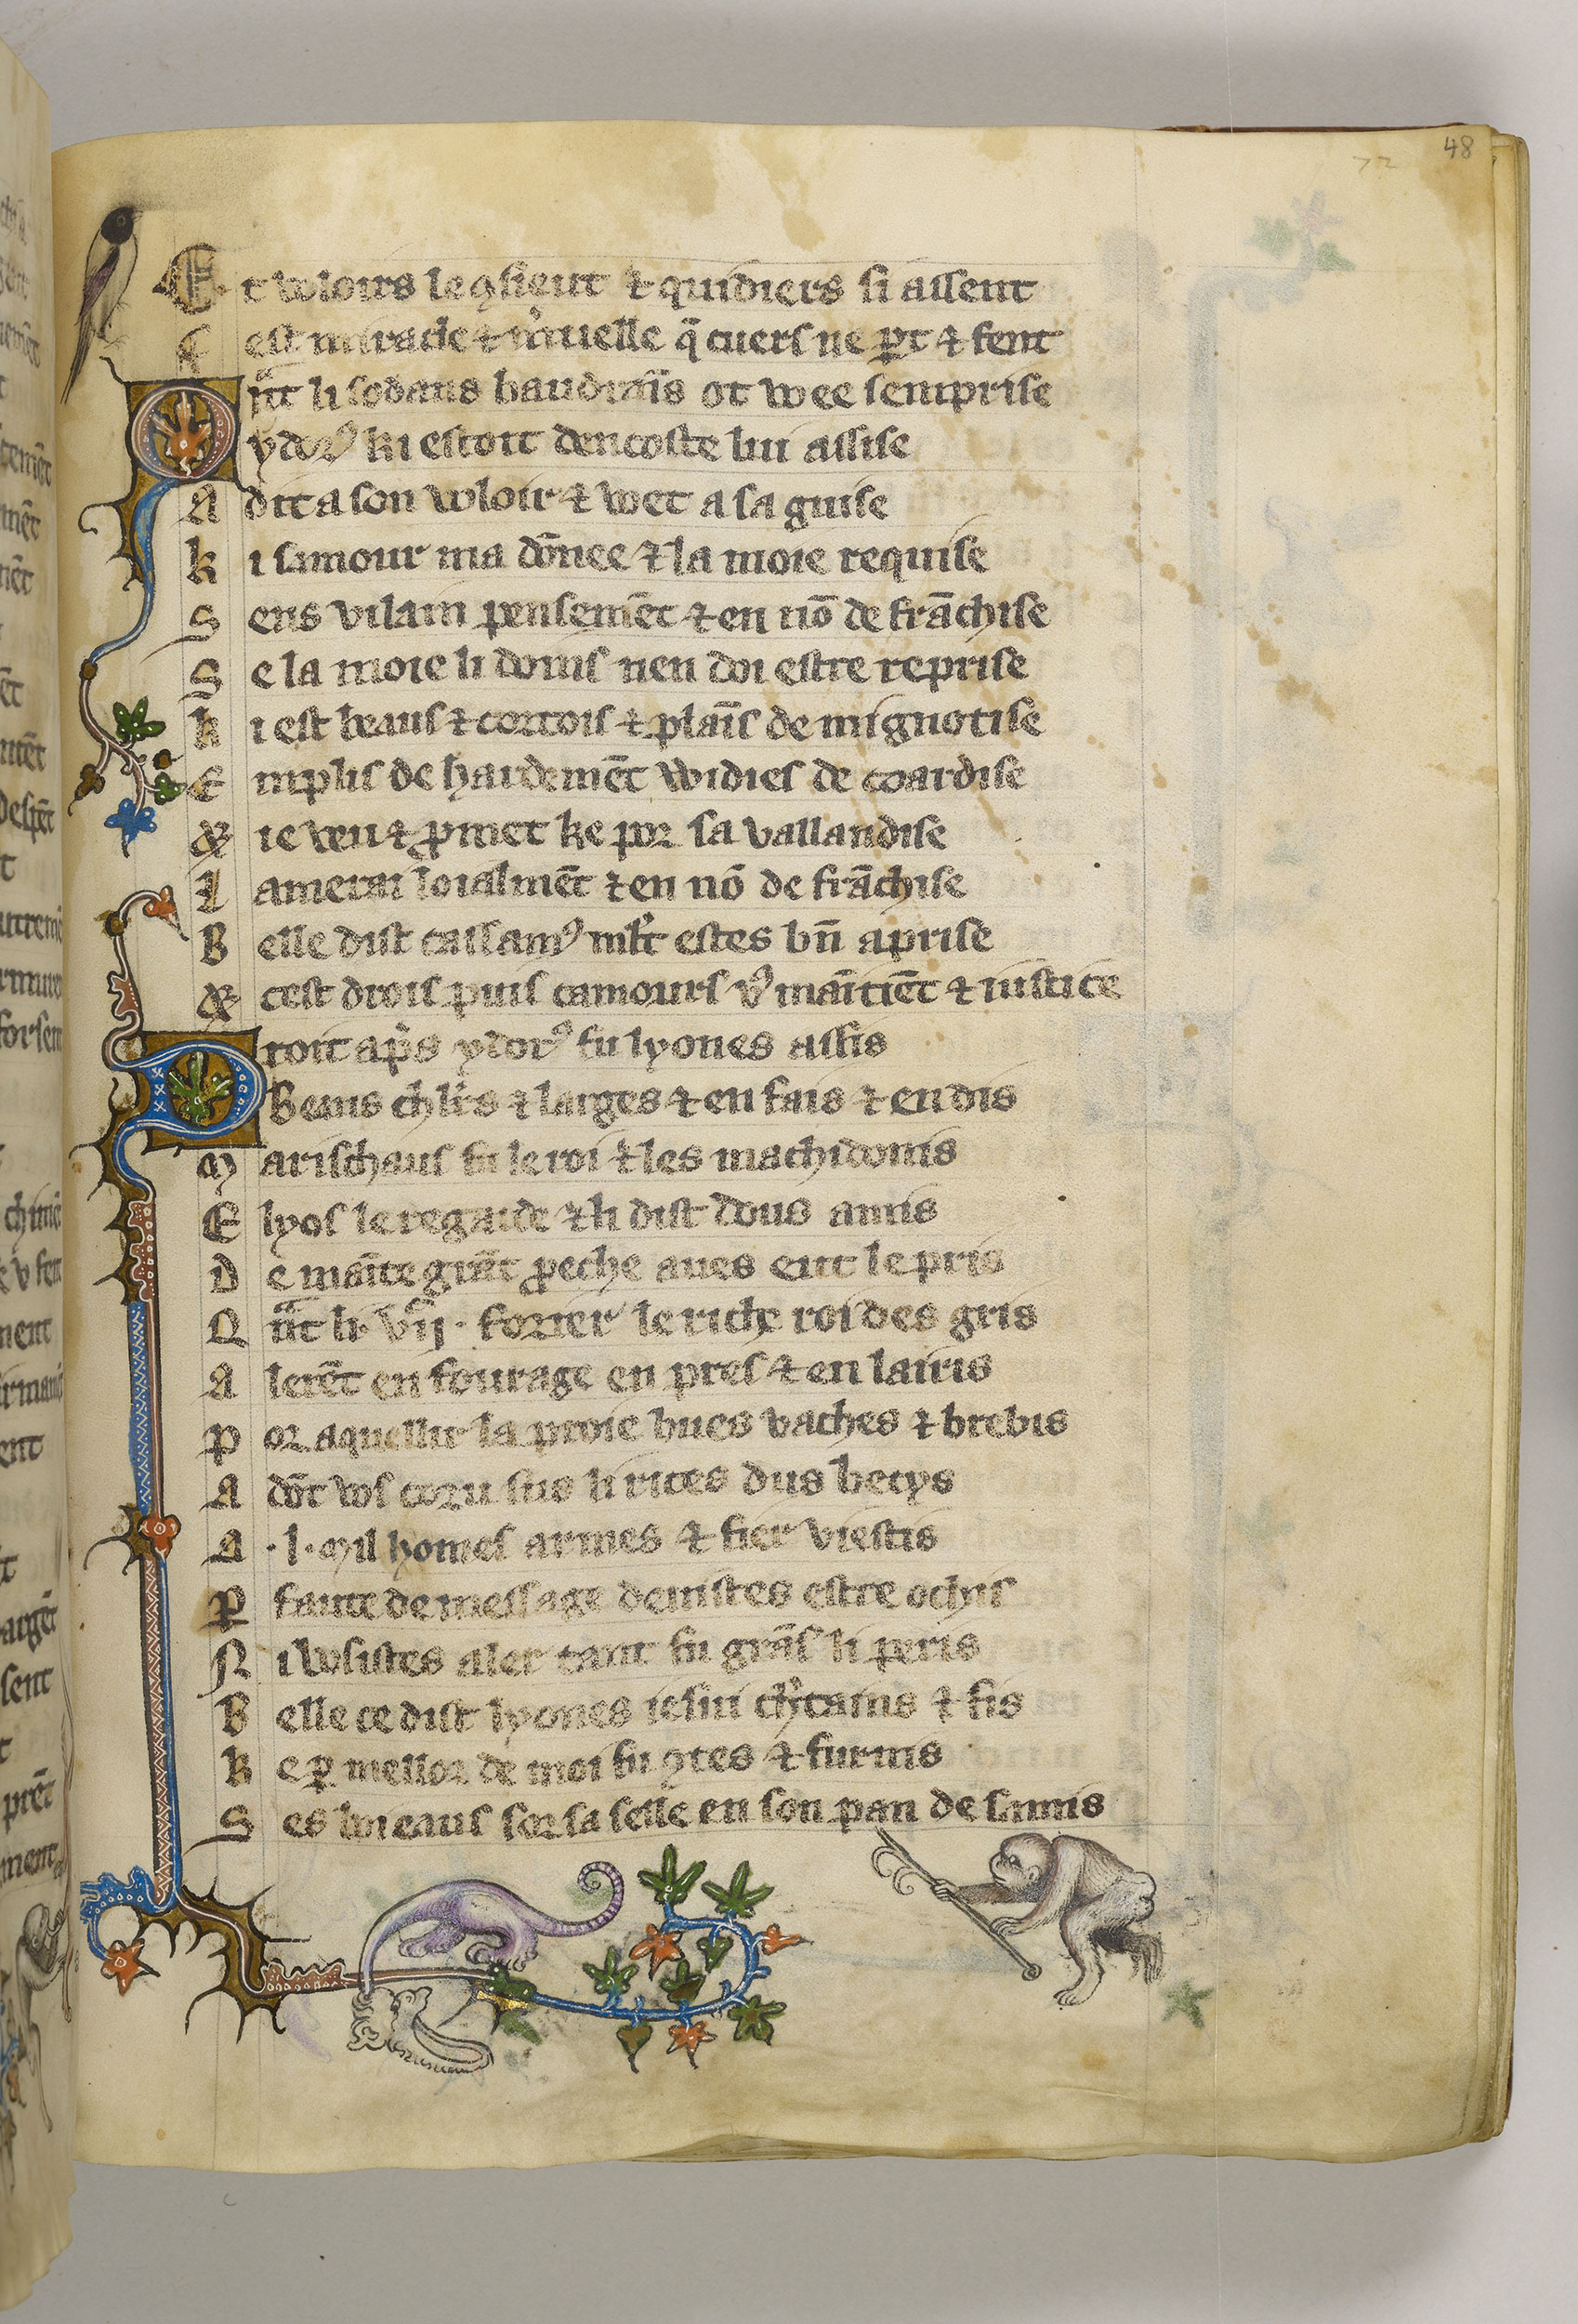 48
Et voloirs le ꝯsieut ⁊ quidiers si assent
C est miracle ⁊ m̾uelle q̄ cuers ne ꝑt ⁊ fent
Qn̄t li sodans baudrains ot wee lemprise
ydor⁹ ki estoit dencoste lui assise
A dit a son voloir ⁊ wet a sa guise
k i samour ma dōnee ⁊ la moie requise
S ens vilain pensemēt ⁊ en nō de frāchise
S e la moie li donis nen doi estre reprise
k i est beaus ⁊ cortois ⁊ plaīs de mignotise
E mplis de hardemēt widies de coardise
⁊ ie veu ⁊ ꝓmet ke por sa vallandise
L amerai loialmēt ⁊ en nō de frāchise
B elle dist cassam⁹ ml't estes bn̄ aprise
⁊ cest drois puis camours v⁹ maītiēt ⁊ iustice
Droit ap̄s ydor⁹ fu lyones assis
Beaus ch'lrs ⁊ larges ⁊ en fais ⁊ en dis
M arischaus fu le roi ⁊ les machidonis
E lyos le regarde ⁊ li dist dous amis
D e maīte grāt ꝓeche aues eut le pris
Q n̄t li .vij. forrer le riche roi des gris
A lerēt en fourage en pres ⁊ en lairis
P or aquellir la proie bues vaches ⁊ brebis
A dōt vos coru sus li rices dus betys
A .l. mil homes armes ⁊ fier viestis
P faute de message deuistes estre ochis
N i vosistes aler tant fu grās li peris
B elle ce dist lyones ie sui ch'tains ⁊ fis
k e ꝑ mellor de moi fu ꝯtes ⁊ furnis
S es lveaus sor sa selle en son pan de samis